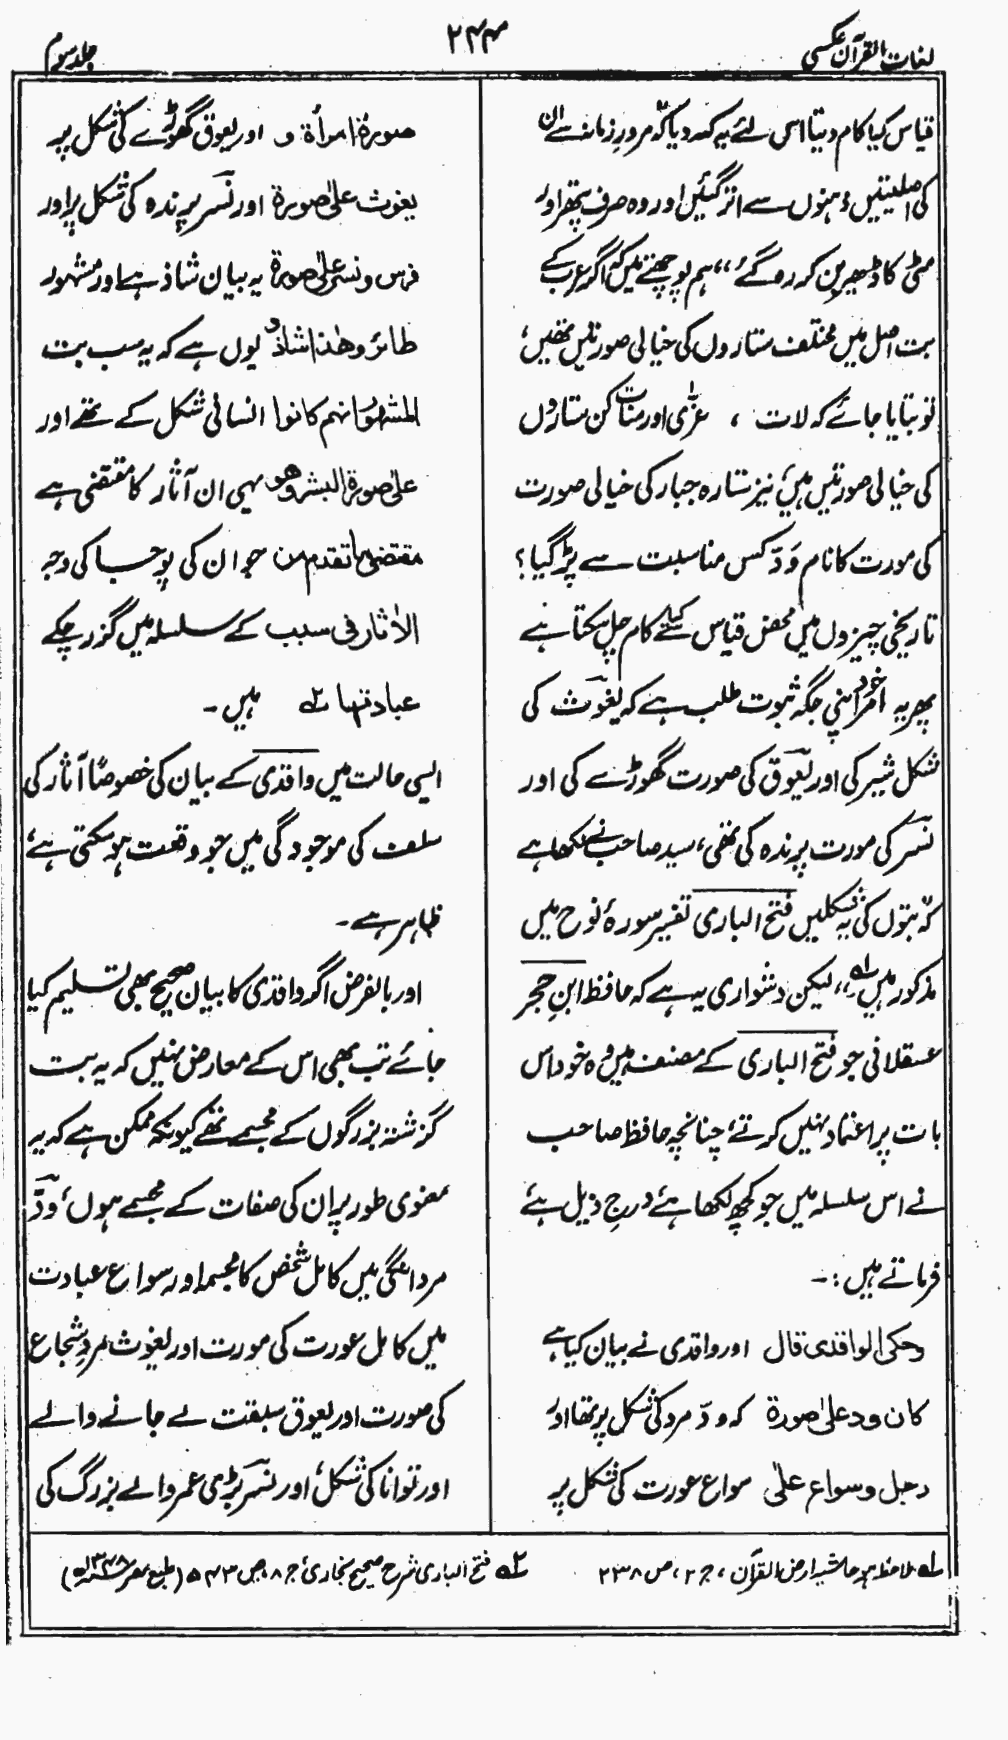 لغات القرآن عکسی
۲۴۴
جلد سوم
قیاس کیا کام دیتا اسی لئے یہ کہہ دیا کہ "مرور زمانہ سے ان
کی اصلیتیں ذہنوں سے اتر گئیں اور وہ صرف پتھر اور
مٹی کا ڈھیر بن کر رہ گئے"، ہم پوچھتے ہیں کہ اگر عرب کے
بت اصل میں مختلف ستاروں کی خیالی صورتیں تھیں،
تو بتایا جائے کہ لات ، عزّٰی اور منات کن ستاروں
کی خیالی صورتیں ہیں، نیز ستارہ جبار کی خیالی صورت
کی مورت کا نام وَدّ کس مناسبت سے پڑ گیا؟
تاریخی چیزوں میں محض قیاس سے کیسے کام چل سکتا ہے
پھر یہ امر خود اپنی جگہ ثبوت طلب ہے کہ یغوث کی
شکل شیر کی اور یعوق کی صورت گھوڑے کی اور
نسر کی مورت پرندہ کی تھی، سید صاحب نے لکھا ہے
کہ "بتوں کی یہ شکلیں فتح الباری تفسیر سورۂ نوح میں
مذکور ہیں"، لیکن دشواری یہ ہے کہ حافظ ابن حجر
عسقلانی جو فتح الباری کے مصنف ہیں وہ خود اس
بات پر اعتماد نہیں کرتے، چنانچہ حافظ صاحب
نے اس سلسلہ میں جو کچھ لکھا ہے درج ذیل ہے
فرماتے ہیں:-
وحکی الواقدی قال اور واقدی نے بیان کیا ہے
کان ود علیٰ صورة کہ ودّ مرد کی شکل پر تھا اور
رجل وسواع علیٰ سواع عورت کی شکل پر
صورة امرأة و اور یعوق گھوڑے کی شکل پر
یغوث علیٰ صورة اور نسر پرندہ کی شکل پر اور
فرس ونسر علیٰ صورة یہ بیان شاذ ہے اور مشہور
طائر وھٰذا شاذ و یوں ہے کہ یہ سب بت
المشہور انہم کانوا انسانی شکل کے تھے اور
علیٰ صورة البشر وھو یہی ان آثار کا مقتضی ہے
مقتضیٰ ما تقدم من جو ان کی پوجا کی وجہ
الاٰثار فی سبب کے سلسلہ میں گزر چکے
عبادتہا ۲ ہیں۔
ایسی حالت میں واقدی کے بیان کی خصوصاً آثار کی
سلف کی موجودگی میں جو وقعت ہو سکتی ہے،
ظاہر ہے۔
اور بالفرض اگر واقدی کا بیان صحیح بھی تسلیم کیا
جائے تب بھی اس کے معارض نہیں کہ یہ بت
گزشتہ بزرگوں کے مجسمے تھے کیونکہ ممکن ہے کہ یہ
معنوی طور پر ان کی صفات کے مجسمے ہوں، ودّ
مردانگی میں کامل شخص کا مجسمہ اور سواع عبادت
میں کامل عورت کی مورت اور یغوث مردِ شجاع
کی صورت اور یعوق سبقت لے جانے والے
اور توانا کی شکل، اور نسر بڑی عمر والے بزرگ کی
۱ ملاحظہ ہو حاشیہ ارض القرآن، ج ۲، ص ۲۳۸
۲ فتح الباری شرح صحیح بخاری، ج ۸، ص ۵۴۳ (طبع مصر ۱۳۴۸ھ)